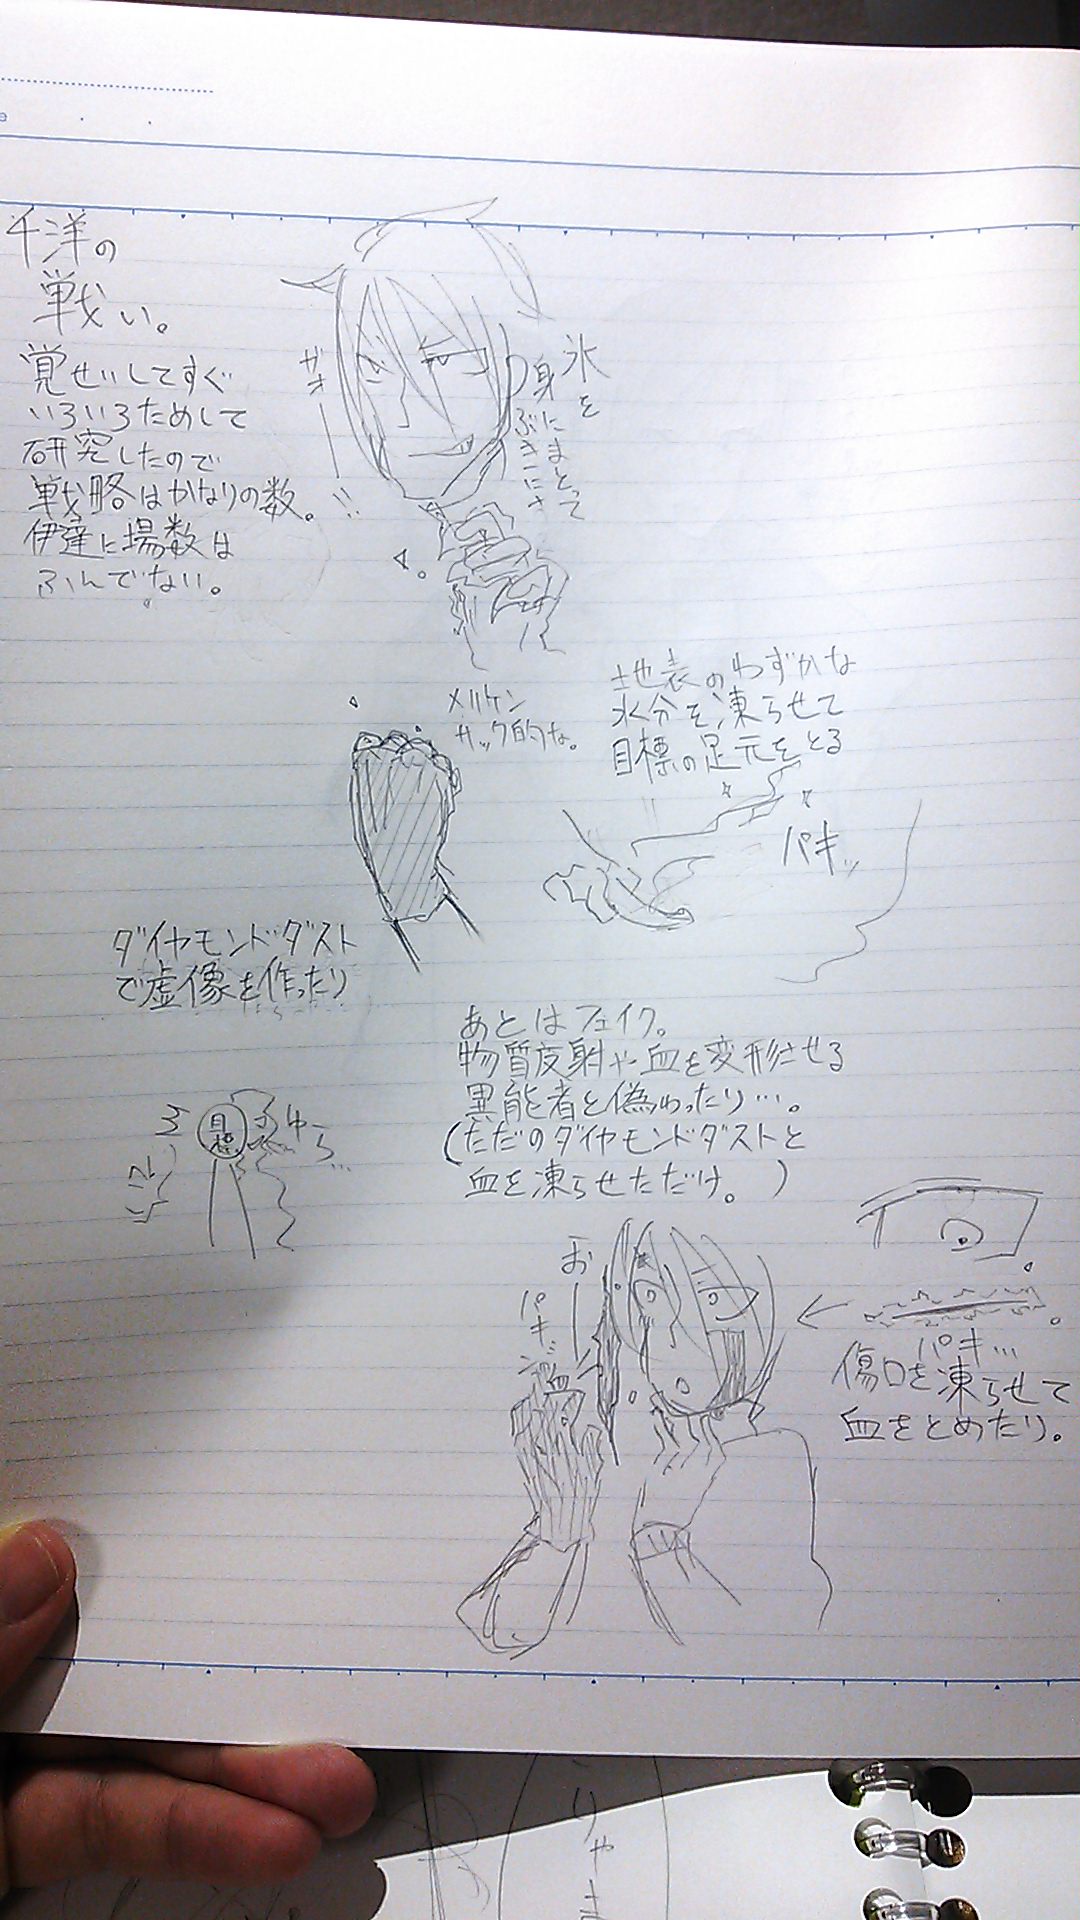 千洋の
戦い。
覚せいしてすぐ
いろいろためして
研究したので
戦略はかなりの数。
伊達に場数は
ふんでない。
氷を
身にまとって
ぶきにさ
メリケン
サック的な。
地表のわずかな
水分を凍らせて
目標の足元をとる
パキッ
ダイヤモンドダスト
で虚像を作ったり
目標
ゆら…
あとはフェイク。
物質反射や血を変形させる
異能者と偽わったり…。
(ただのダイヤモンドダストと
血を凍らせただけ。)
お
パキ
血
パキ…
傷口を凍らせて
血をとめたり。